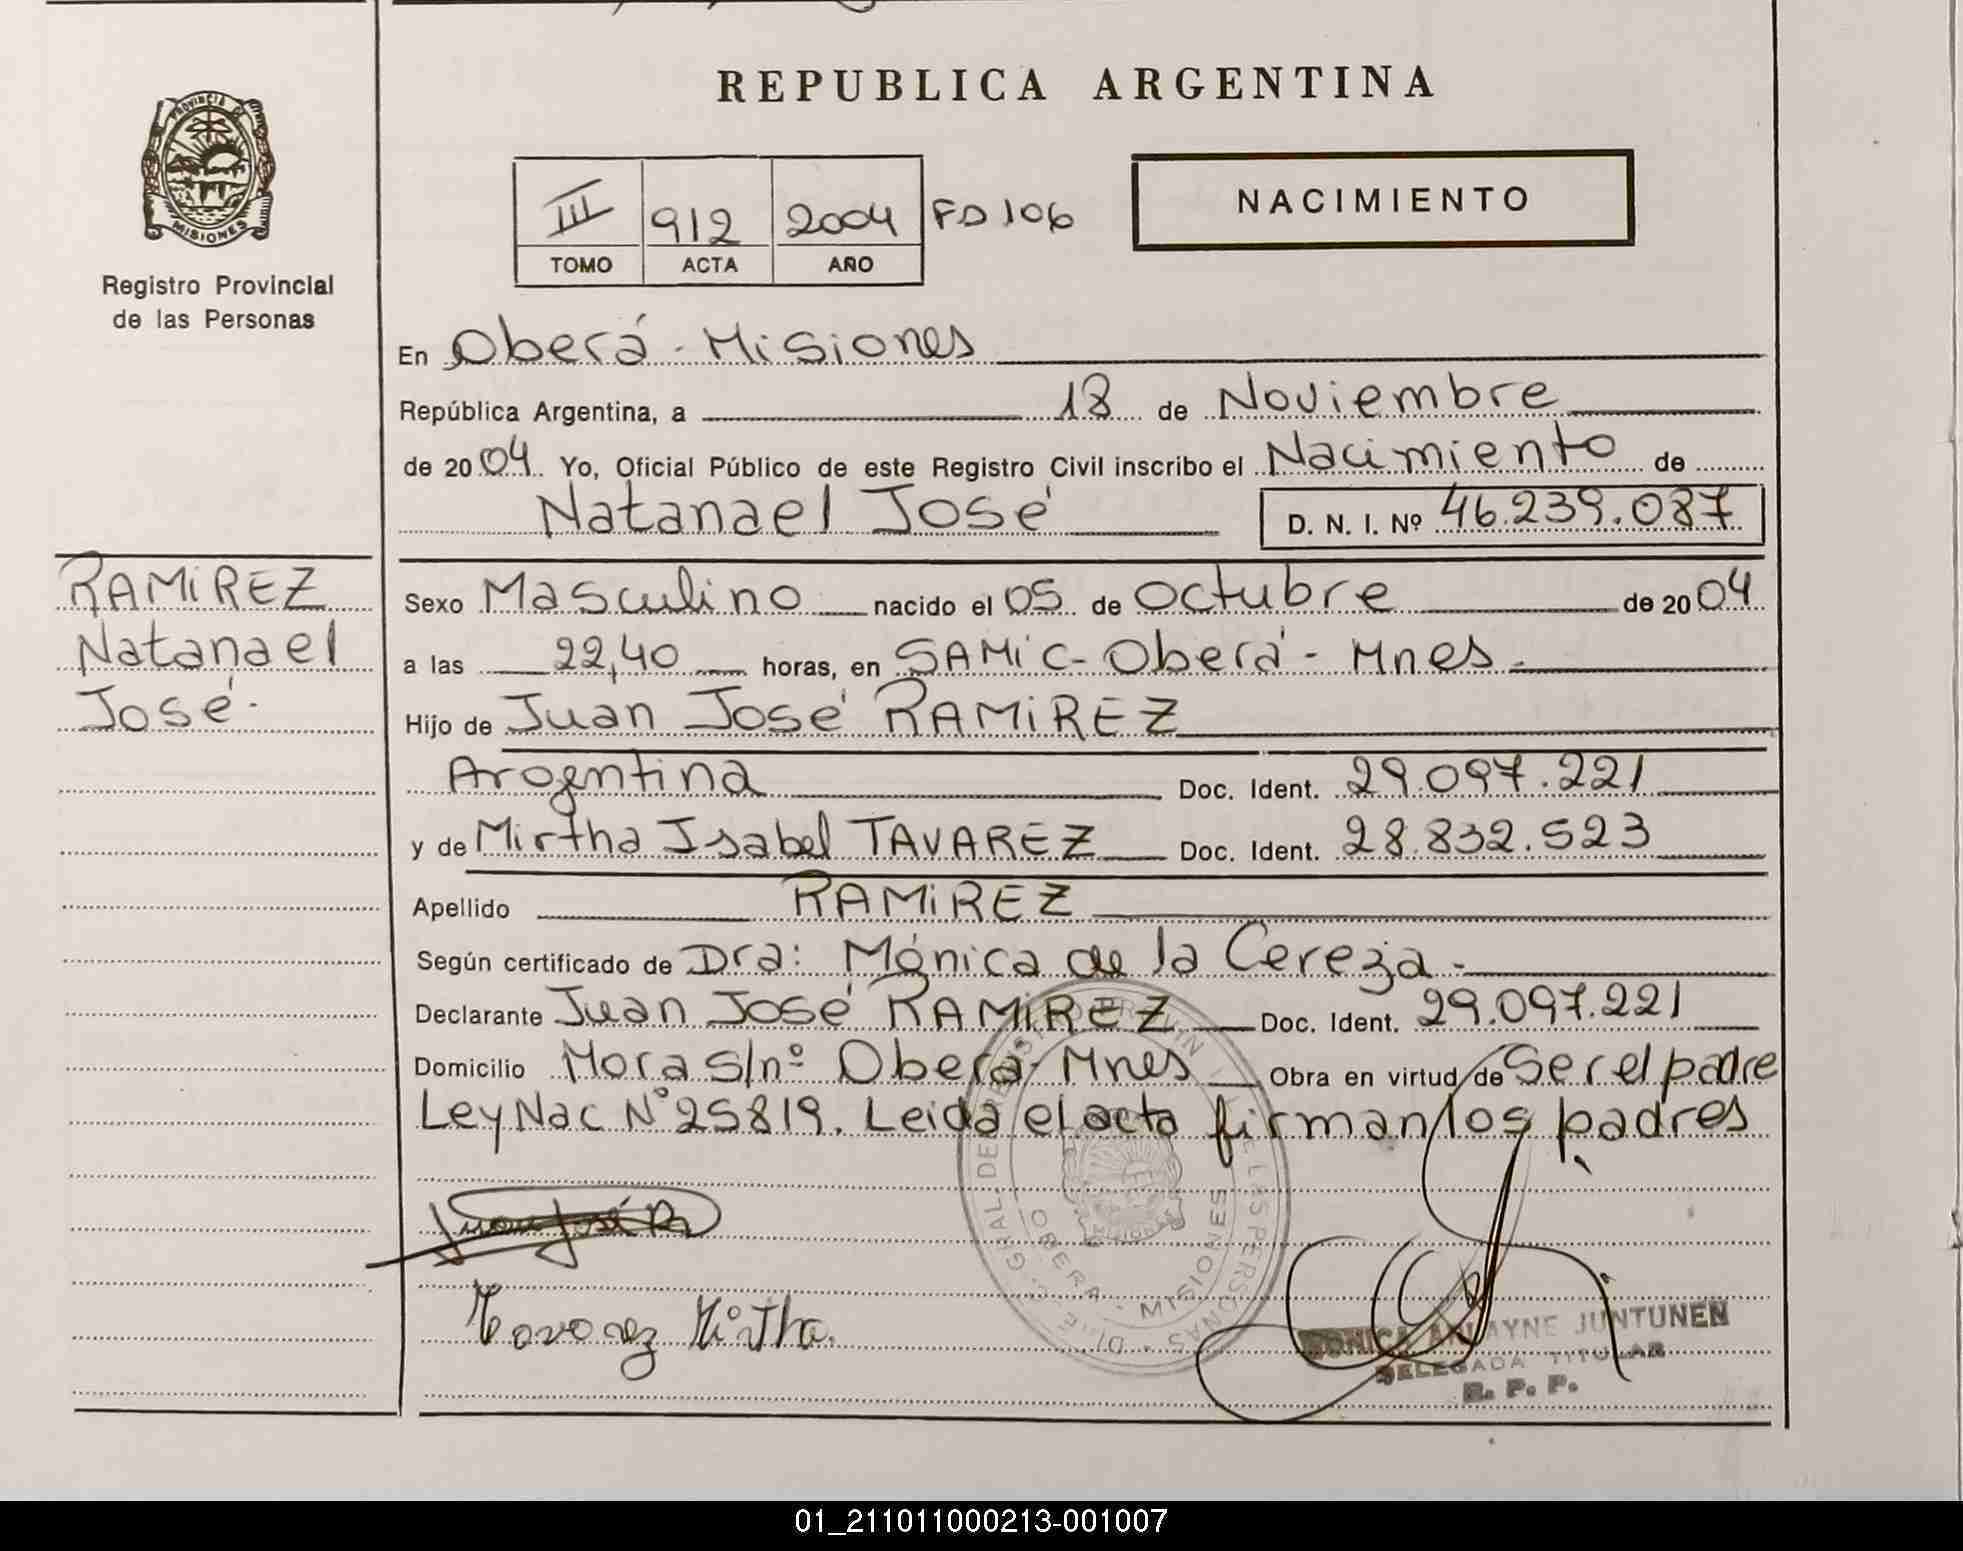 REPUBLICA ARGENTINA
PROVINCIA DE
MISIONES
Registro Provincial
de las Personas
III 912 2004 FD 106
TOMO ACTA AÑO
NACIMIENTO
En Oberá - Misiones
República Argentina, a 18 de Noviembre
de 2004 Yo, Oficial Público de este Registro Civil inscribo el Nacimiento de
Natanael José D. N. I. Nº 46.239.087
RAMIREZ
Natanael
José.
Sexo Masculino nacido el 05 de Octubre de 2004
a las 22,40 horas, en SAMIC - Oberá - Mnes.
Hijo de Juan José RAMIREZ
Argentina Doc. Ident. 29.097.221
y de Mirtha Isabel TAVAREZ Doc. Ident. 28.832.523
Apellido RAMIREZ
Según certificado de Dra: Mónica de la Cereza.
Declarante Juan José RAMIREZ Doc. Ident. 29.097.221
Domicilio Mora S/nº Oberá - Mnes Obra en virtud de Ser el padre
Ley Nac Nº 25819. Leida el acta firman los padres
Juan José R
Tavarez Mirtha.
OBERA - MISIONES
JUNTUNEN
DELEGADA TITULAR
R. P. P.
01_211011000213-001007